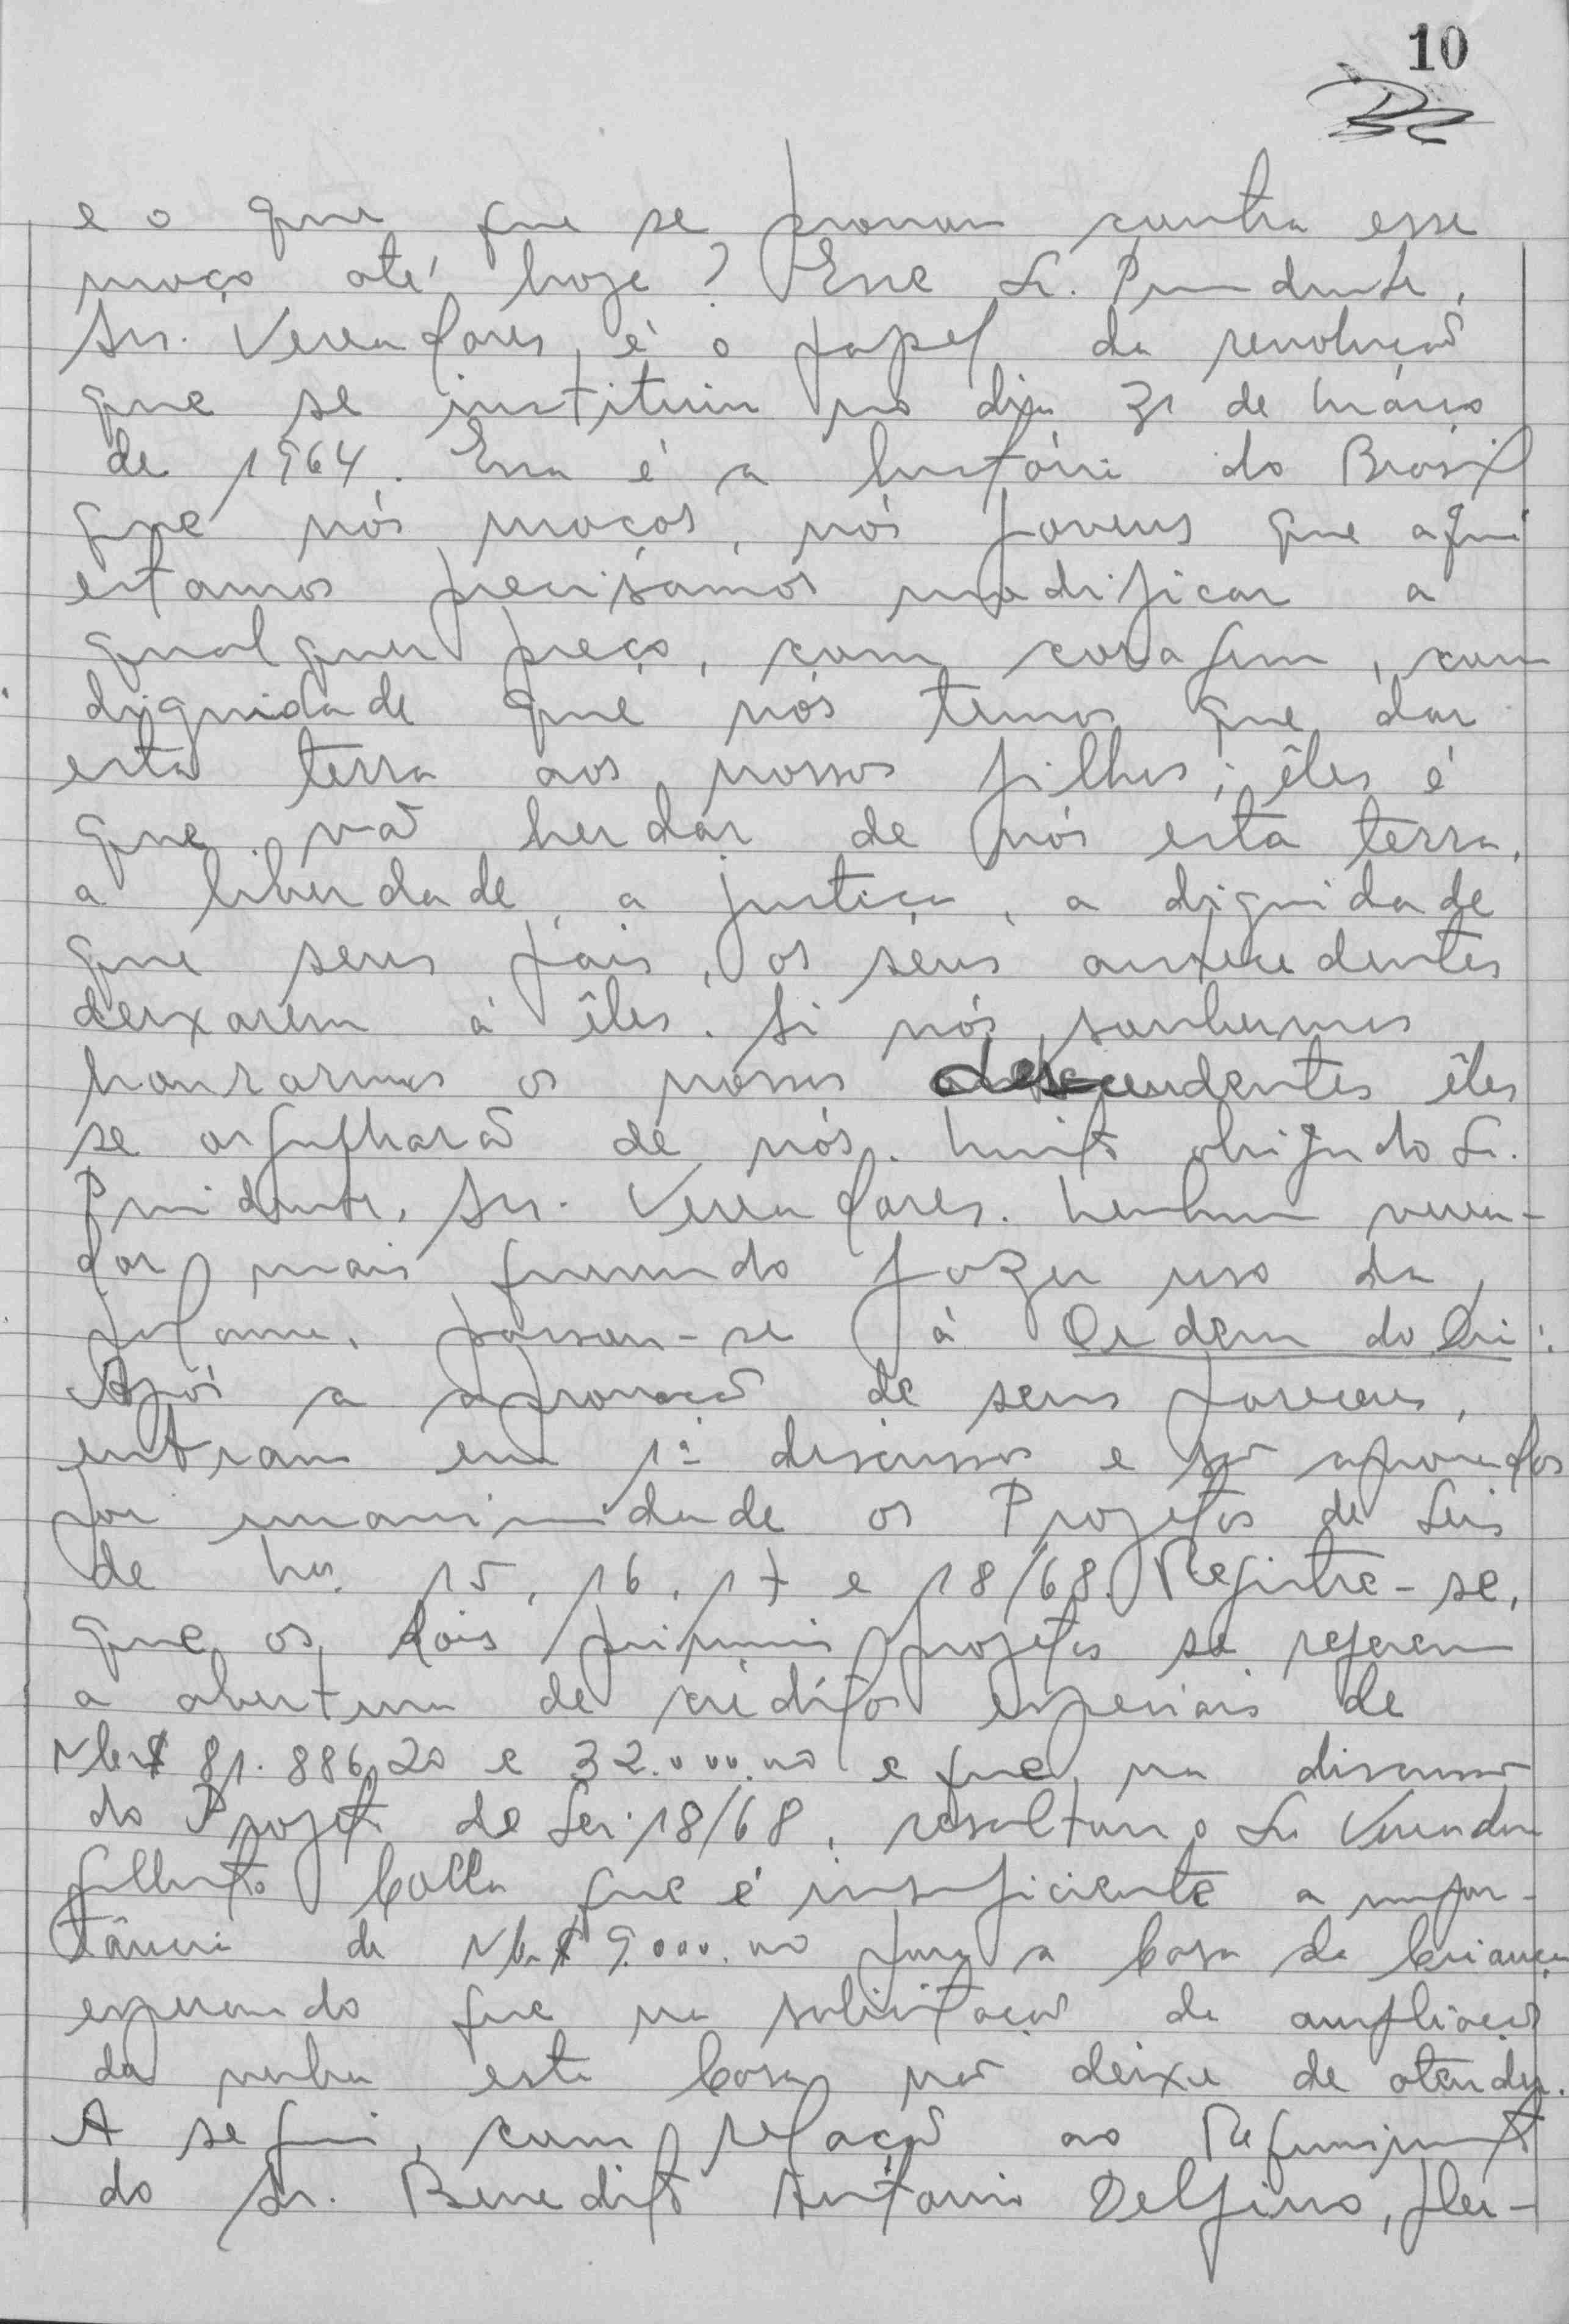 10
e o que que se provou contra esse
moço até hoje? Esse Sr. Presidente,
Srs. Vereadores, é o papel da revolução
que se instituiu no dia 31 de Março
de 1964. Essa é a história do Brasil
que nós moços, nós jovens que aqui
estamos precisamos modificar a
qualquer preço, com coragem, com
dignidade que nós temos que dar
esta terra aos nossos filhos; êles é
que vão herdar de nós esta terra,
a liberdade, a justiça, a dignidade
que seus pais, os seus antecedentes
deixarem à êles. Si nós soubermos
honrarmos os nossos descendentes êles
se orgulharão de nós. Muito obrigado Sr.
Presidente, Srs. Vereadores. Nenhum verea-
dor mais querendo fazer uso da
palavra, passou-se à Ordem do Dia:
Após a aprovação de seus pareceres,
entram em 1ª discussão e são aprovados
por unanimidade os Projetos de Leis
de Nos. 15, 16, 17 e 18/68. Registre-se,
que os dois primeiros projetos se referem
a abertura de créditos especiais de
NCr$ 81.886,20 e 32.000,00 e que, na discussão
do Projeto de Lei 18/68, ressaltou o Sr. Vereador
Gilberto Colla que é insuficiente a impor-
tância de NCr$ 9.000,00 para a Casa da Criança
esperando que na solicitação de ampliação
da verba esta Casa não deixe de atender.
A seguir, com relação ao Requerimento
do Sr. Benedito Antonio Delfino, plei-